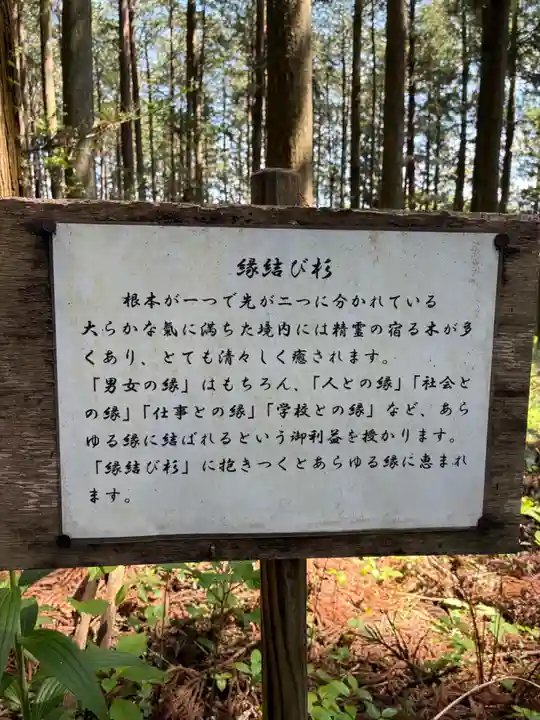 縁結び杉
根本が一つで先が二つに分かれている
大らかな氣に満ちた境内には精霊の宿る木が多
くあり、とても清々しく癒されます。
「男女の縁」はもちろん、「人との縁」「社会と
の縁」「仕事との縁」「学校との縁」など、あら
ゆる縁に結ばれるという御利益を授かります。
「縁結び杉」に抱きつくとあらゆる縁に恵まれ
ます。